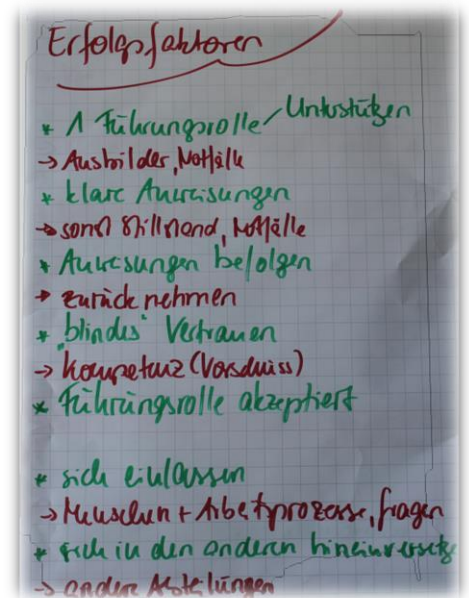 Erfolgsfaktoren
* 1 Führungsrolle / Unterstützen
→ Ausbilder, Notfälle
* klare Anweisungen
→ sonst Stillstand, Notfälle
* Anweisungen befolgen
→ zurück nehmen
* "blindes" Vertrauen
→ Kompetenz (Vorschuss)
* Führungsrolle akzeptiert
* sich einlassen
→ Menschen + Arbeitsprozesse, fragen
* sich in den anderen hineinversetze
→ andere Abteilungen